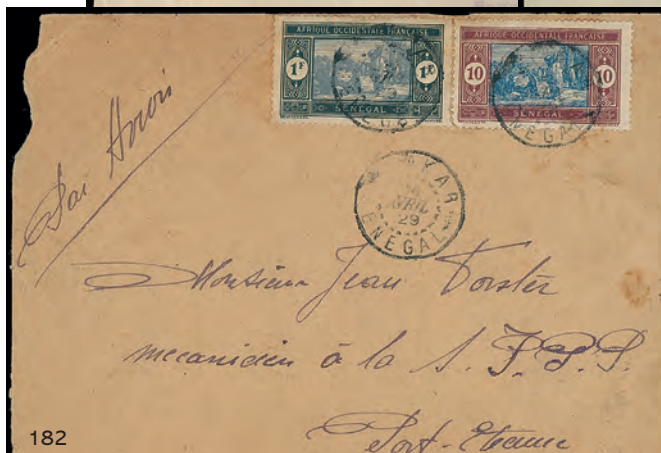 AFRIQUE OCCIDENTALE FRANÇAISE
1F 1F
SÉNÉGAL
AFRIQUE OCCIDENTALE FRANÇAISE
10 10
SÉNÉGAL
NEGAL
Par Avion
KAR
AVRIL
29
ENEGAL
Monsieur Jean
mecanicien à la S.
Port-Etienne
182